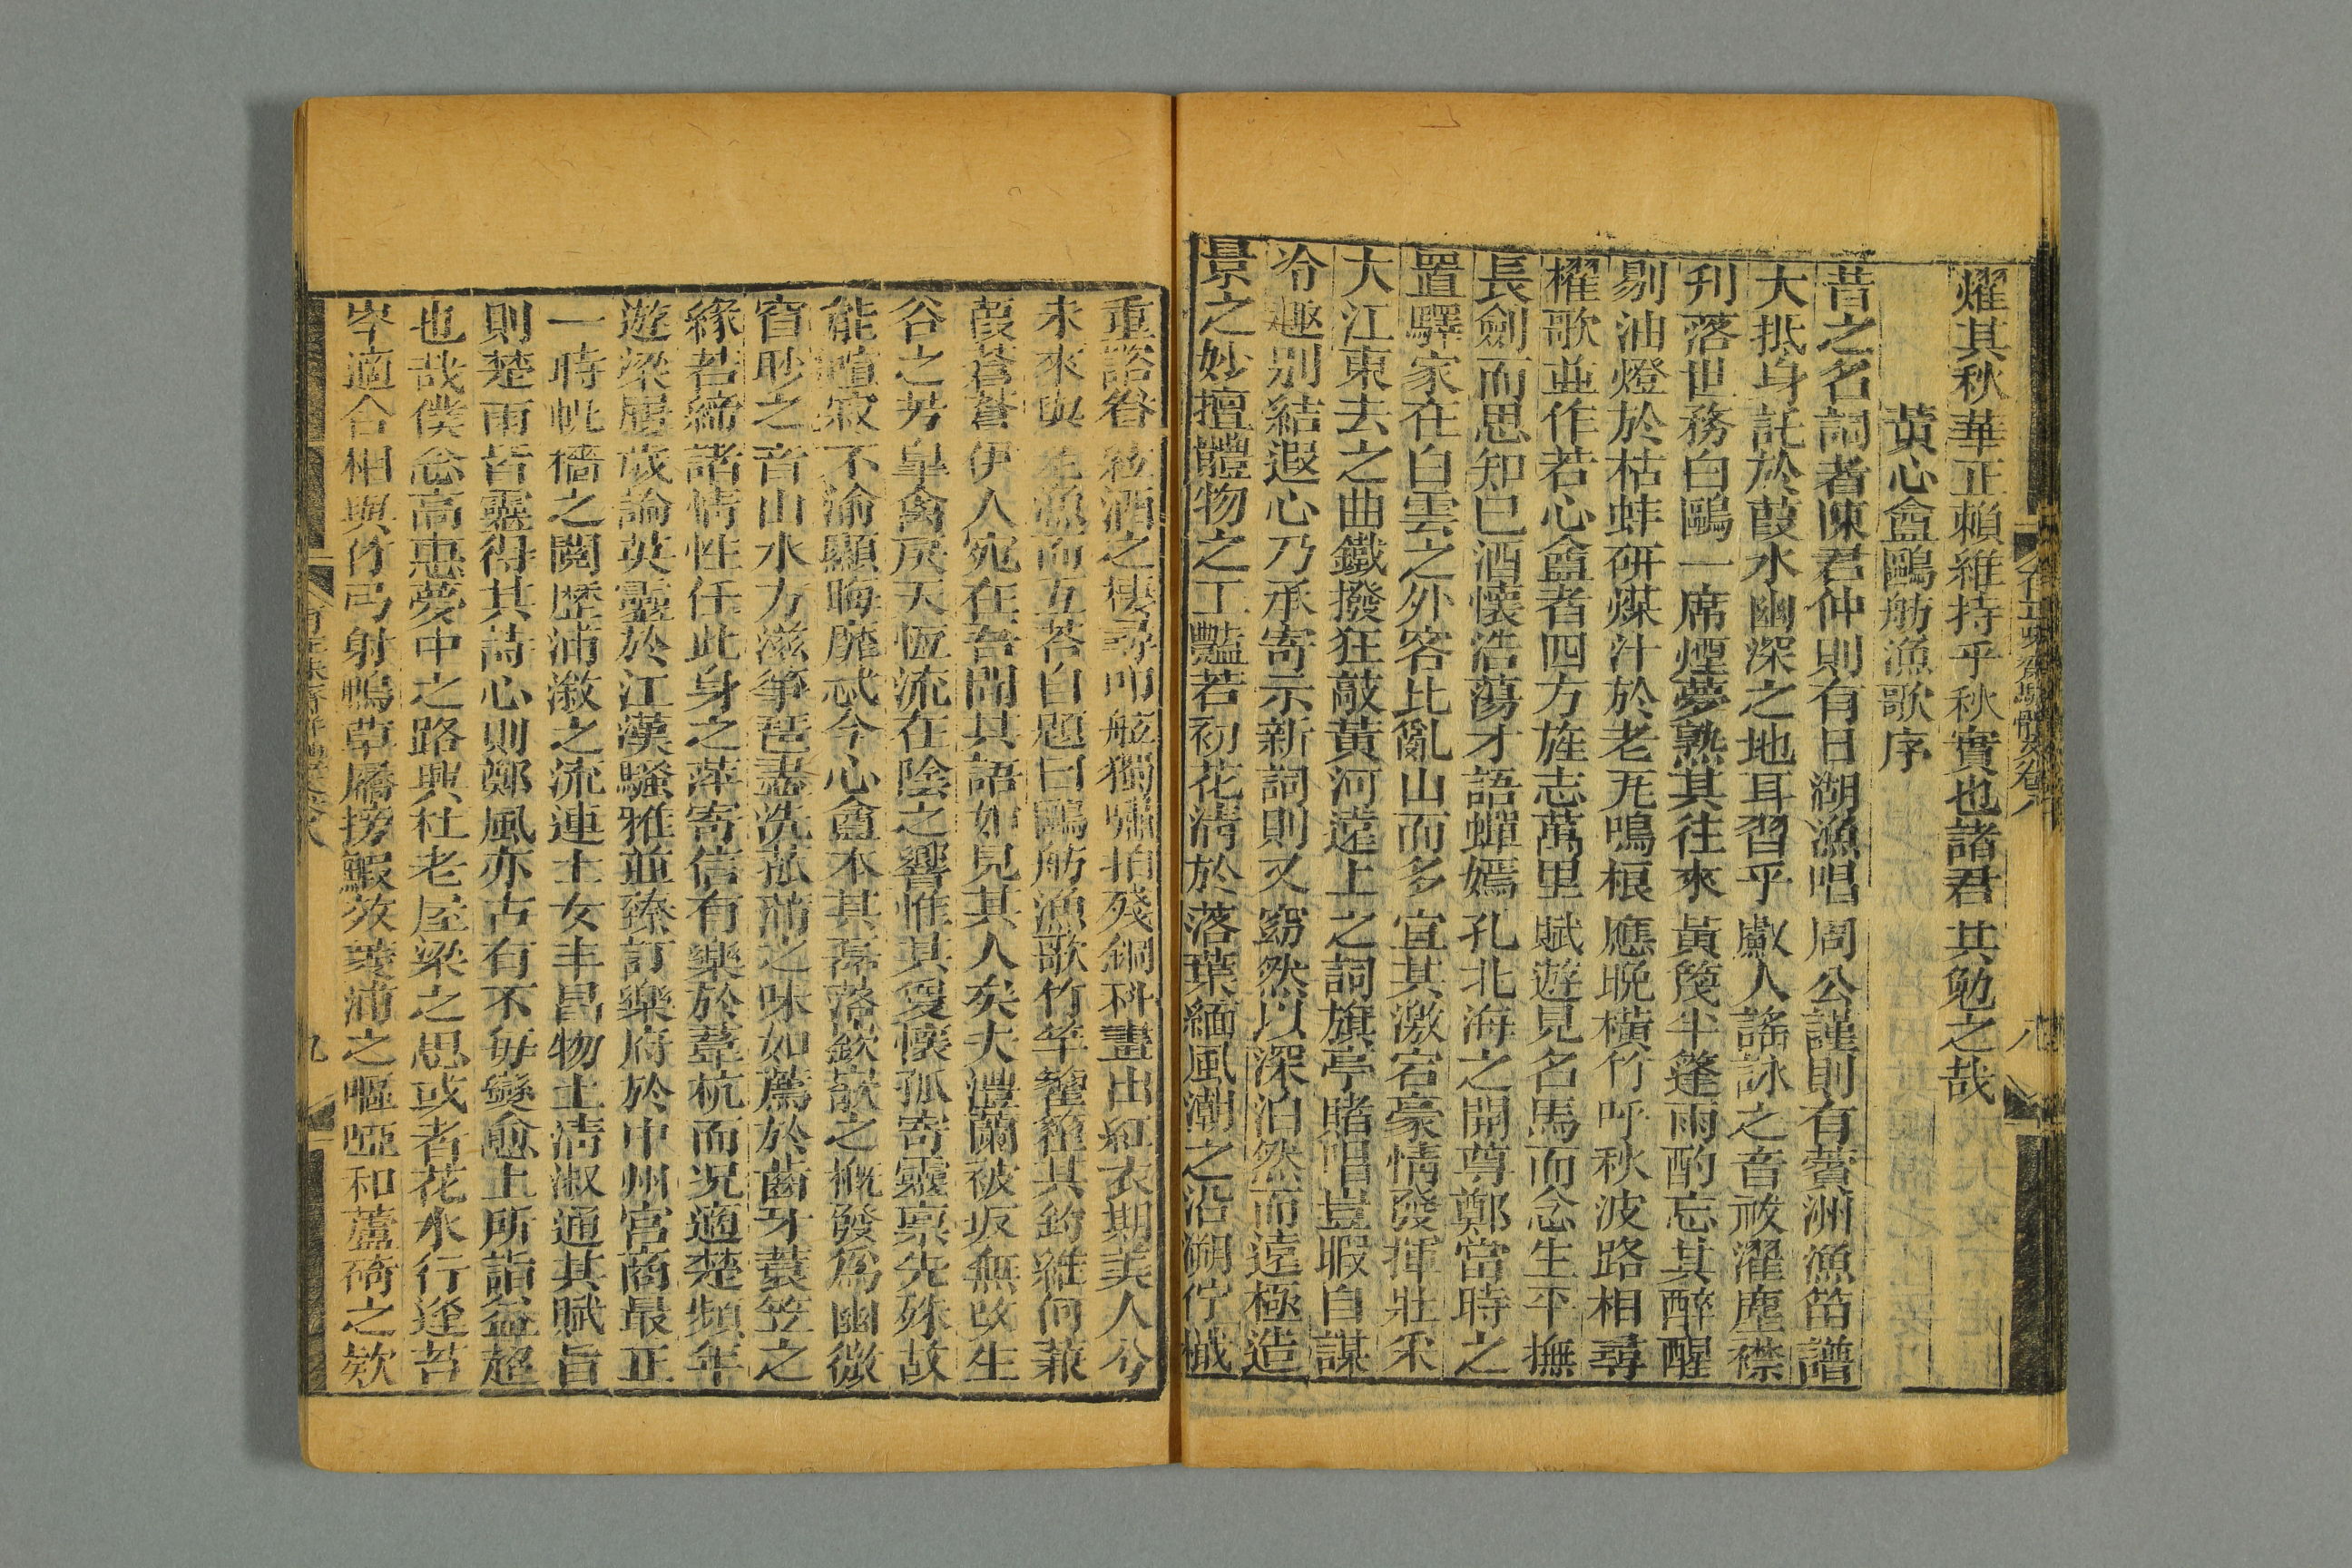 燿其秋華正賴維持乎秋實也諸君其勉之哉
黃心盦鷗舫漁歌序
昔之名詞者陳君仲則有日湖漁唱周公謹則有薲洲漁笛譜
大抵身託於葭水幽深之地耳習乎歔人謠詠之音祓濯塵襟
刋落世務白鷗一席煙夢熟其往來黃篾半篷雨酌忘其醉醒
剔油燈於枯蚌研煤汁於老瓦鳴榔應晚橫竹呼秋波路相尋
櫂歌並作若心盦者四方旌志萬里賦遊見名馬而念生平撫
長劍而思知已酒懷浩蕩才語蟬嫣孔北海之開尊鄭當時之
置驛家在白雲之外客此亂山而多宜其激宕豪情發揮壯采
大江東去之曲鐵撥狂敲黃河遠上之詞旗亭賭唱豈暇自謀
冷趣别結遐心乃承寄示新詞則又窈然以深泊然而遠極造
景之妙擅體物之工豔若初花淸於落葉緬風潮之沿溯佇檝
重谿眷烟酒之棲尋叩舷獨嘯拍殘銅斗畫出紅衣期美人兮
未來與漁而互荅自題曰鷗舫漁歌竹竿籊籊其釣維何蒹
葭蒼蒼伊人宛在吾聞其語如見其人矣夫澧蘭被坂無改生
谷之芳皐禽戾天恆流在陰之響惟其夐懷孤寄靈稟先殊故
能喧寂不渝顯晦靡忒今心盦本其磊落嶔嶔之概發爲幽微
窅眇之音山水方滋箏琶盡洗菰蒲之味如薦於齒牙蓑笠之
緣若締諸情性任此身之萍寄信有樂於葦杭而況適楚頻年
遊梁屢歲論英靈於江漢騷雅並臻訂樂府於中州宮商最正
一時帆檣之閱歷浦溆之流連士女丰昌物土淸淑通其賦旨
則楚雨皆靈得其詩心則鄭風亦古有不每變愈上所詣益超
也哉僕念高惠夢中之路興杜老屋梁之思或者花水行逢苔
岑適合相與竹弓射鴨草屩撈鰕效菱浦之嘔啞和蘆碕之欸
八
九